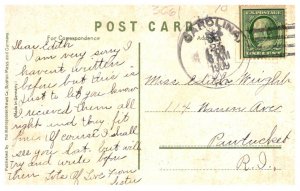 3661
10
POST CARD
For Correspondence
For Address
CAROLINA
Dear Edith
I am very sorry I
haven't written
before but this is
just to let you know
I recieved them all
right and they fit
fine. Of course I shall
see you Sat. but will
try and write before
then. Lots of Love from
Miss Edith Wright
114 Warren Ave
Pawtucket
R.I.